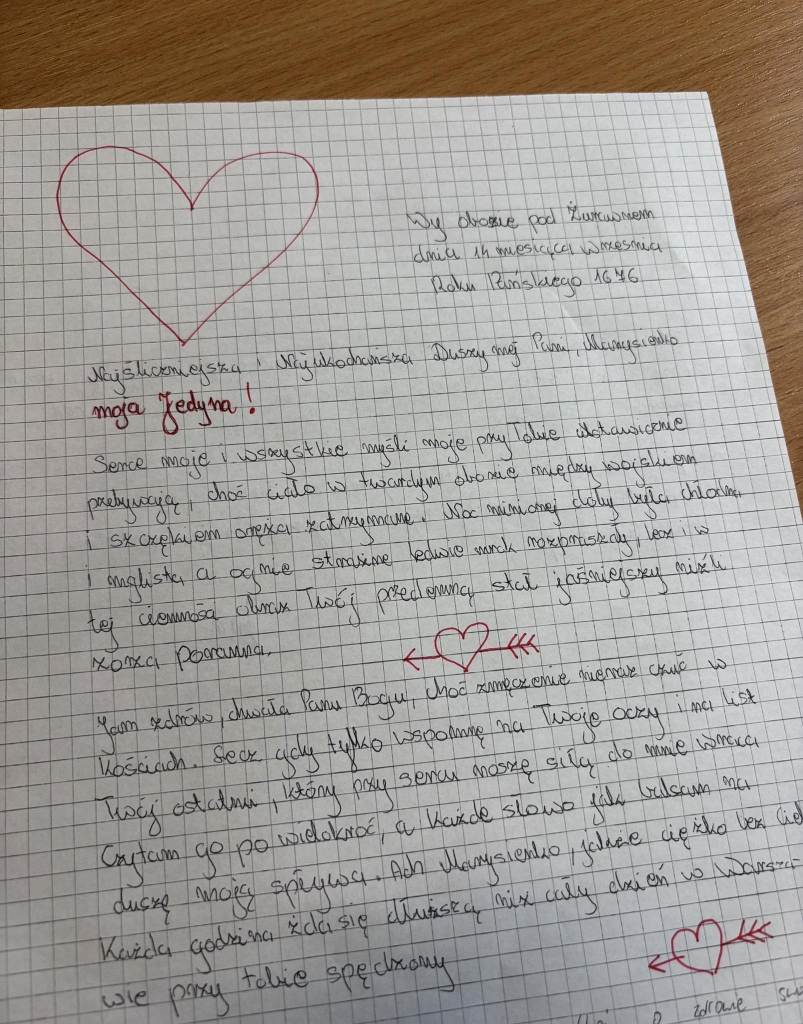 Wy obozie pod Żurawnem
dnia 14 miesiąca września
Roku Pańskiego 1676
Najśliczniejsza i Najukochańsza Duszy mej Pani, Marysieńko
moja Jedyna!
Serce moje i wszystkie myśli moje przy Tobie ustawicznie
przebywają, choć ciało w twardym obozie między wojskiem
i szczękiem oręża zatrzymane. Noc minionej doby była chłodna
i mglista, a ognie strażne ledwie mrok rozpraszały, lecz i w
tej ciemności obraz Twój przedemną stał jaśniejszy niźli
zorza poranna.
Jam zdrów, chwała Panu Bogu, choć zmęczenie nieraz czuć w
kościach. Lecz gdy tylko wspomnę na Twoje oczy i na list
Twój ostatni, który przy sercu noszę siłą do mnie wraca
Czytam go po wielokroć, a każde słowo jak balsam na
duszę moją spływa. Ach Marysieńko, jakże ciężko bez Cie
Każda godzina zda się dłuższą niż cały dzień w Warsza-
wie przy tobie spędzony
zdrowie